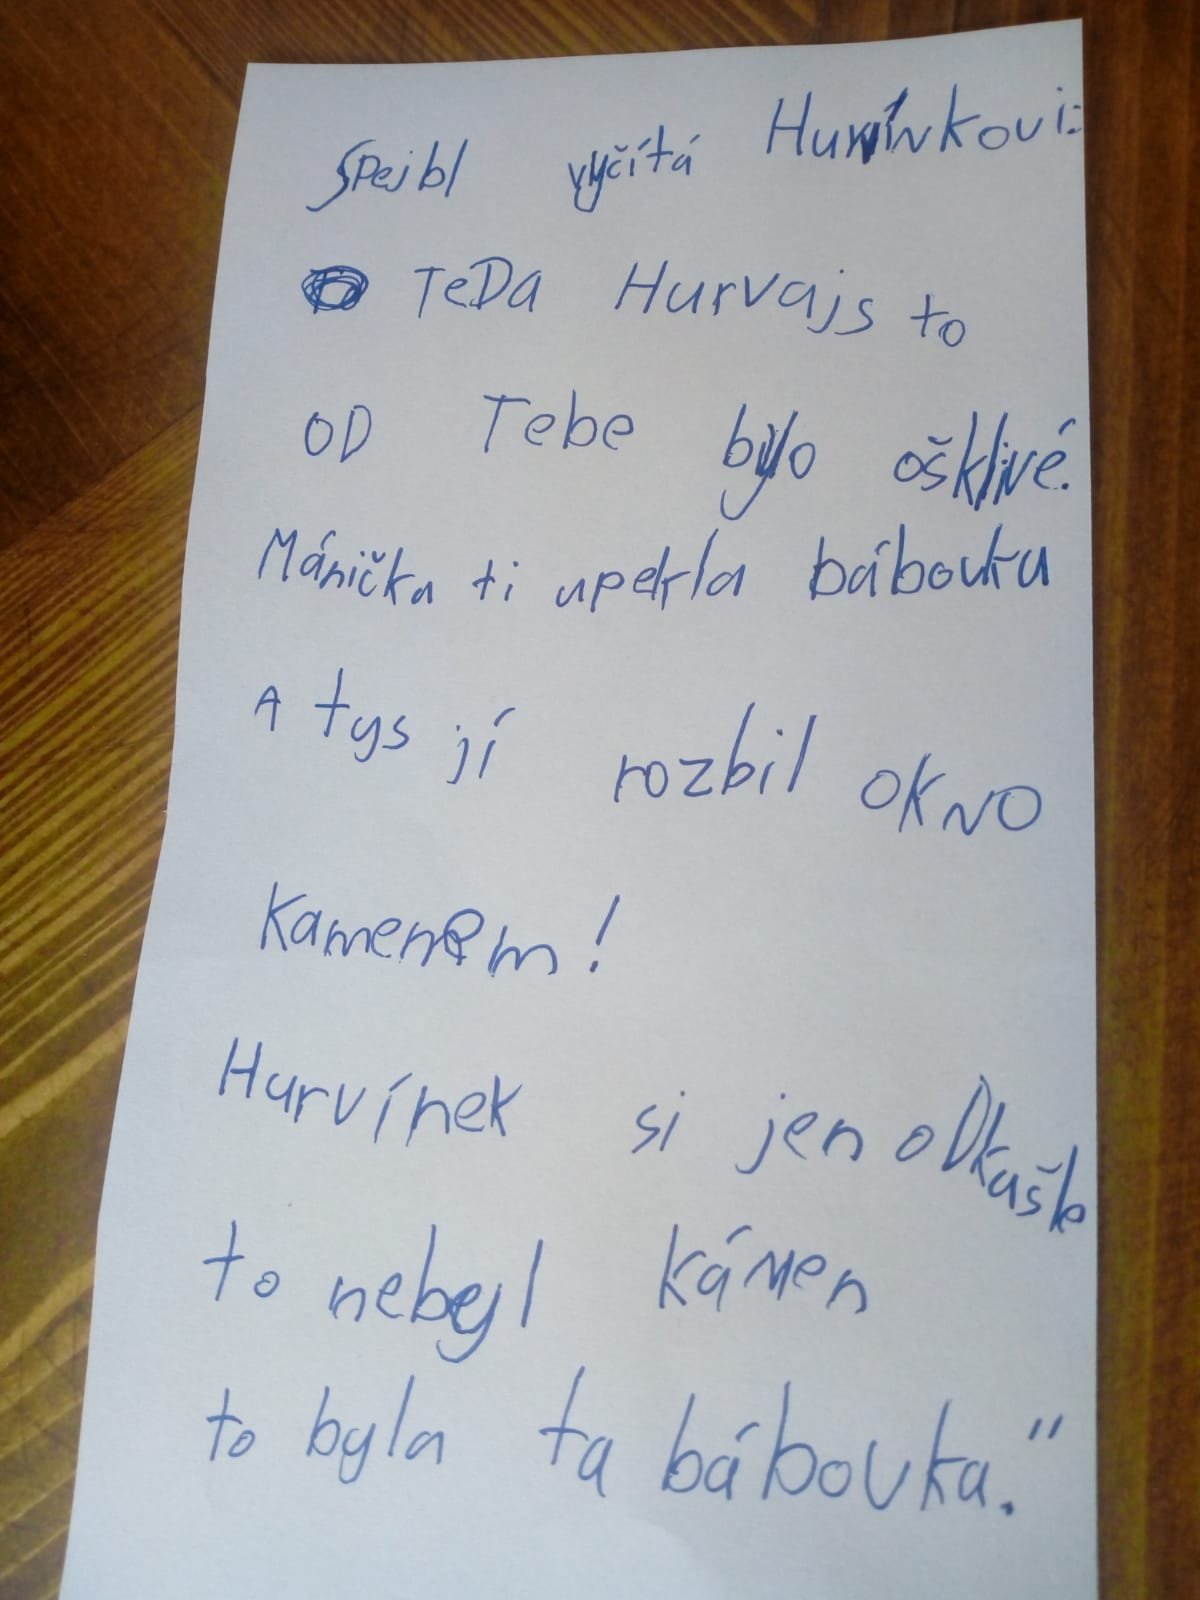 Spejbl vyčítá Hurvínkovi:
TeDa Hurvajs to
OD Tebe bylo ošklivé.
Mánička ti upekla bábovku
A tys jí rozbil okno
Kamenem!
Hurvínek si jen oDkašle
to nebyl kámen
to byla ta bábovka."